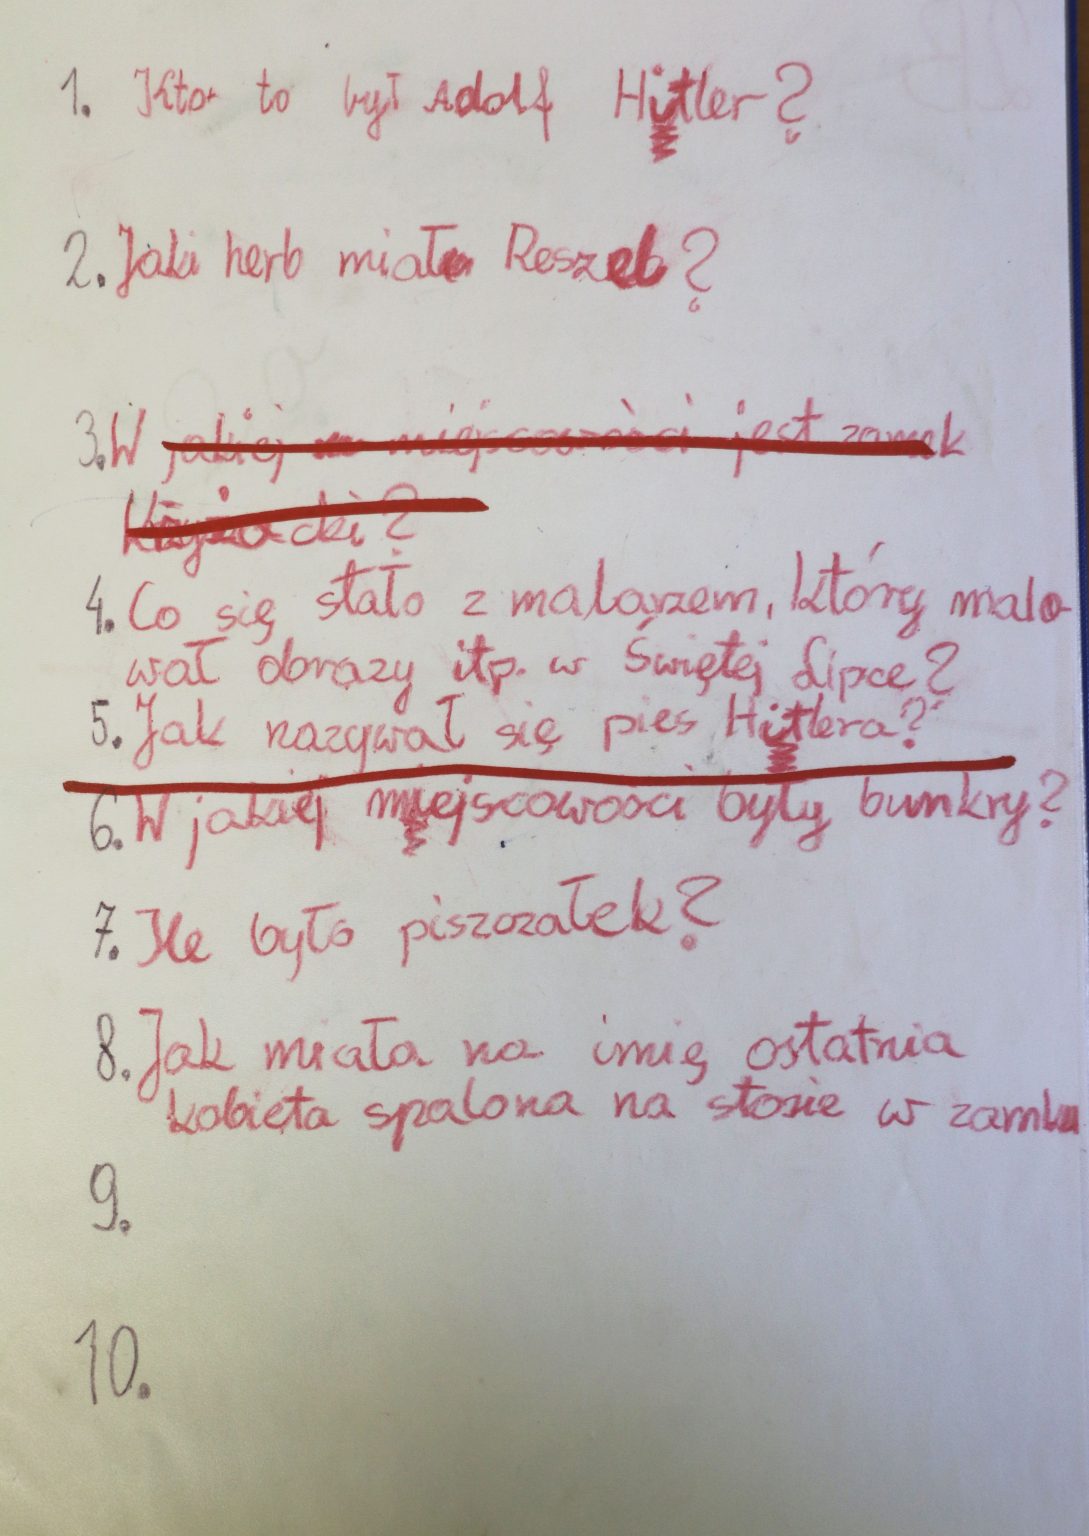 1. Kto to był Adolf Hitler?
2. Jaki herb miał Reszel?
3. W jakiej miejscowości jest zamek
Krzyżacki?
4. Co się stało z malarzem, który malo-
wał obrazy itp. w Świętej Lipce?
5. Jak nazywał się pies Hitlera?
6. W jakiej miejscowości były bunkry?
7. Ile było piszczałek?
8. Jak miała na imię ostatnia
kobieta spalona na stosie w zamku
9.
10.